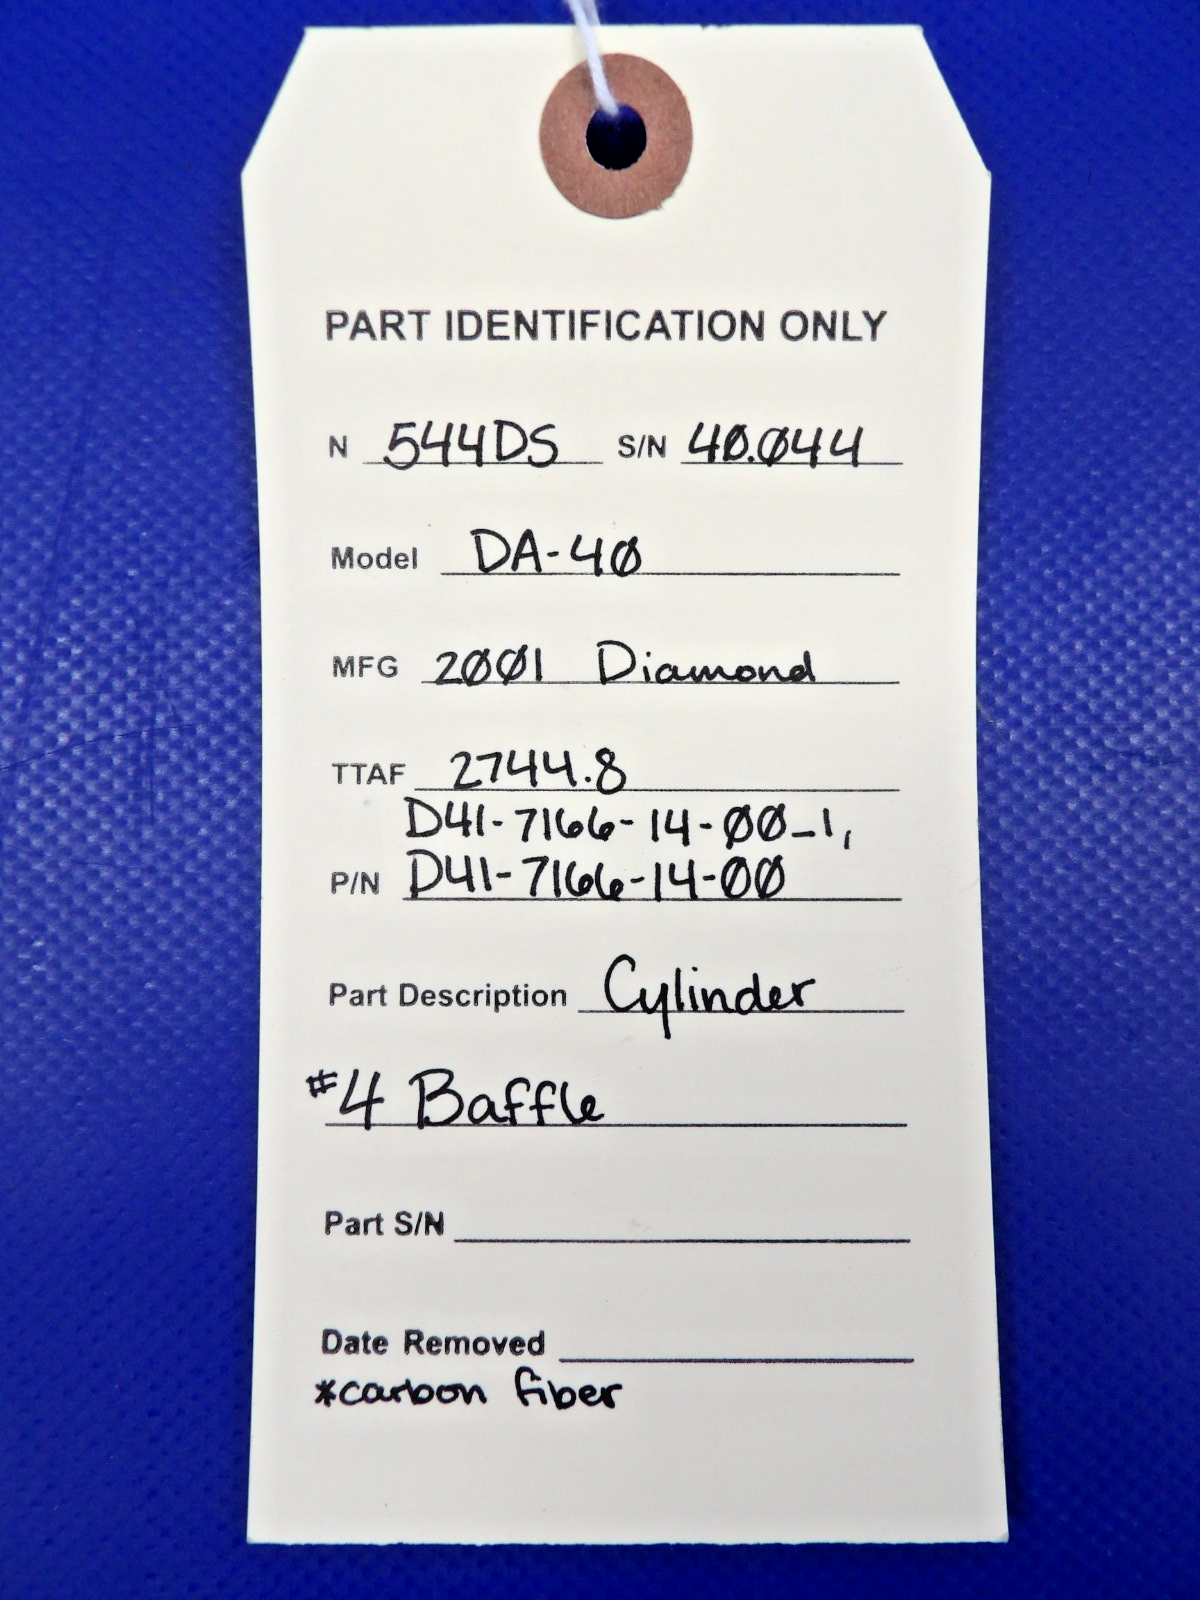 PART IDENTIFICATION ONLY
N 544DS S/N 40.044
Model DA-40
MFG 2001 Diamond
TTAF 2744.8
D41-7166-14-00-1,
P/N D41-7166-14-00
Part Description Cylinder
#4 Baffle
Part S/N
Date Removed
*carbon fiber